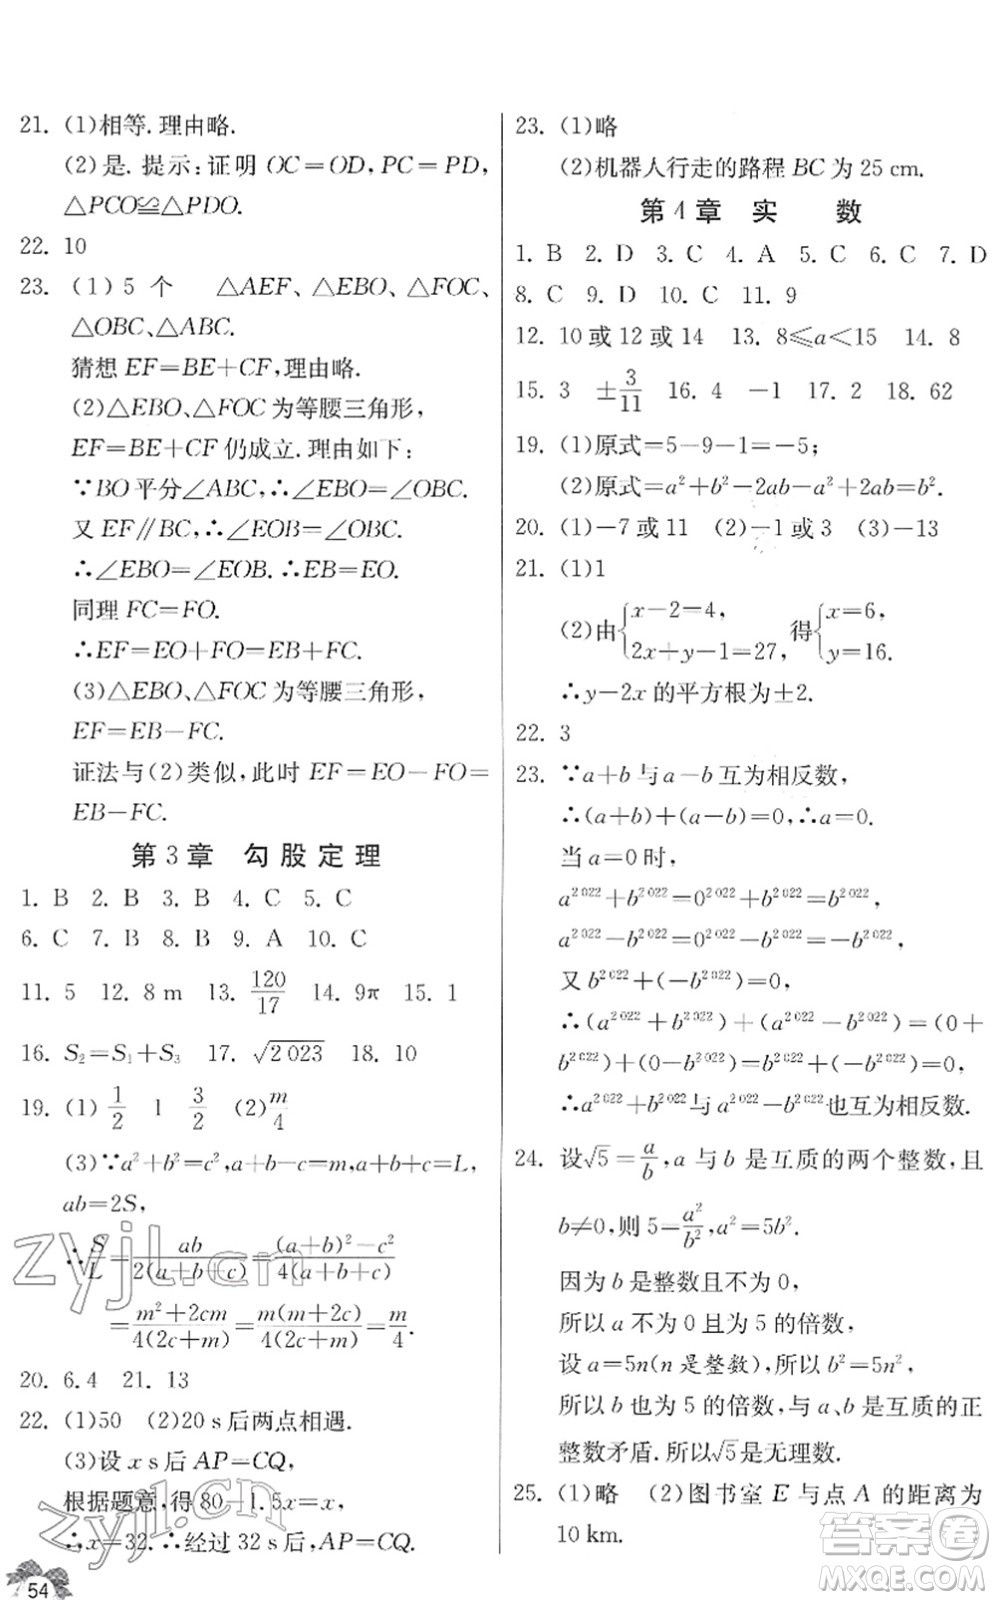 21. (1)相等.理由略.
(2)是.提示:证明 OC=OD,PC=PD,
△PCO≌△PDO.
22. 10
23. (1)5 个 △AEF、△EBO、△FOC、
△OBC、△ABC.
猜想 EF=BE+CF,理由略.
(2)△EBO、△FOC 为等腰三角形,
EF=BE+CF 仍成立.理由如下:
∵BO 平分∠ABC,∴∠EBO=∠OBC.
又 EF∥BC,∴∠EOB=∠OBC.
∴∠EBO=∠EOB.∴EB=EO.
同理 FC=FO.
∴EF=EO+FO=EB+FC.
(3)△EBO、△FOC 为等腰三角形,
EF=EB-FC.
证法与(2)类似,此时 EF=EO-FO=
EB-FC.
第 3 章 勾股定理
1. B 2. B 3. B 4. C 5. C
6. C 7. B 8. B 9. A 10. C
11. 5 12. 8 m 13. 120/17 14. 9π 15. 1
16. S₂=S₁+S₃ 17. √2 023 18. 10
19. (1) 1/2 1 3/2 (2) m/4
(3)∵a²+b²=c²,a+b-c=m,a+b+c=L,
ab=2S,
∴S/L=ab/2(a+b+c)=(a+b)²-c²/4(a+b+c)
=m²+2cm/4(2c+m)=m(m+2c)/4(2c+m)=m/4.
20. 6.4 21. 13
22. (1)50 (2)20 s 后两点相遇.
(3)设 x s 后 AP=CQ,
根据题意,得 80-1.5x=x,
∴x=32.∴经过 32 s 后,AP=CQ.
54
23. (1)略
(2)机器人行走的路程 BC 为 25 cm.
第 4 章 实 数
1. B 2. D 3. C 4. A 5. C 6. C 7. D
8. C 9. D 10. C 11. 9
12. 10 或 12 或 14 13. 8≤a<15 14. 8
15. 3 ±3/11 16. 4 -1 17. 2 18. 62
19. (1)原式=5-9-1=-5;
(2)原式=a²+b²-2ab-a²+2ab=b².
20. (1)-7 或 11 (2)-1 或 3 (3)-13
21. (1)1
(2)由{x-2=4, 2x+y-1=27, 得{x=6, y=16.
∴y-2x 的平方根为±2.
22. 3
23. ∵a+b 与 a-b 互为相反数,
∴(a+b)+(a-b)=0,∴a=0.
当 a=0 时,
a²⁰²²+b²⁰²²=0²⁰²²+b²⁰²²=b²⁰²²,
a²⁰²²-b²⁰²²=0²⁰²²-b²⁰²²=-b²⁰²²,
又 b²⁰²²+(-b²⁰²²)=0,
∴(a²⁰²²+b²⁰²²)+(a²⁰²²-b²⁰²²)=(0+
b²⁰²²)+(0-b²⁰²²)=b²⁰²²+(-b²⁰²²)=0,
∴a²⁰²²+b²⁰²²与 a²⁰²²-b²⁰²²也互为相反数.
24. 设√5=a/b,a 与 b 是互质的两个整数,且
b≠0,则 5=a²/b²,a²=5b².
因为 b 是整数且不为 0,
所以 a 不为 0 且为 5 的倍数,
设 a=5n(n 是整数),所以 b²=5n²,
所以 b 也为 5 的倍数,与 a、b 是互质的正
整数矛盾.所以√5是无理数.
25. (1)略 (2)图书室 E 与点 A 的距离为
10 km.
zyjl.cn
zyjl.cn
答案圈
MXQE.COM